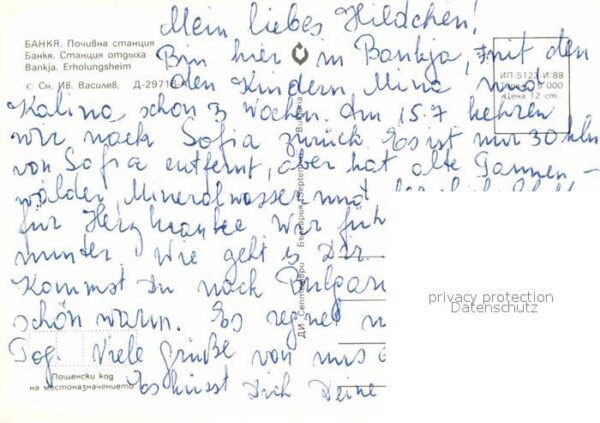 Mein liebes Hildchen!
БАНКЯ. Почивна станция
Банкя. Станция отдыха
Bankja. Erholungsheim
© Сн. ИВ. Василев. Д-29718-А
Bin hier in Bankja, mit den
den Kindern Mina und
Kalina schon 3 Wochen. Am 15.7 kehren
wir nach Sofia zurück. Es ist nur 30 klm
von Sofia entfernt, aber hat alte Tannen-
wälder, Mineralwasser und
für Herzkranke. Wir füh
munter. Wie geht es Dir.
Kommst Du nach Bulgari
schön warm. Es regnet
Tag. Viele Grüße von uns
Es küsst Dich Deine
ИП-5123-И/88
5 000
Цена 12 ст.
ДИ Септември България /Septemvri Bulgaria
Пощенски код
на местоназначението
privacy protection
Datenschutz